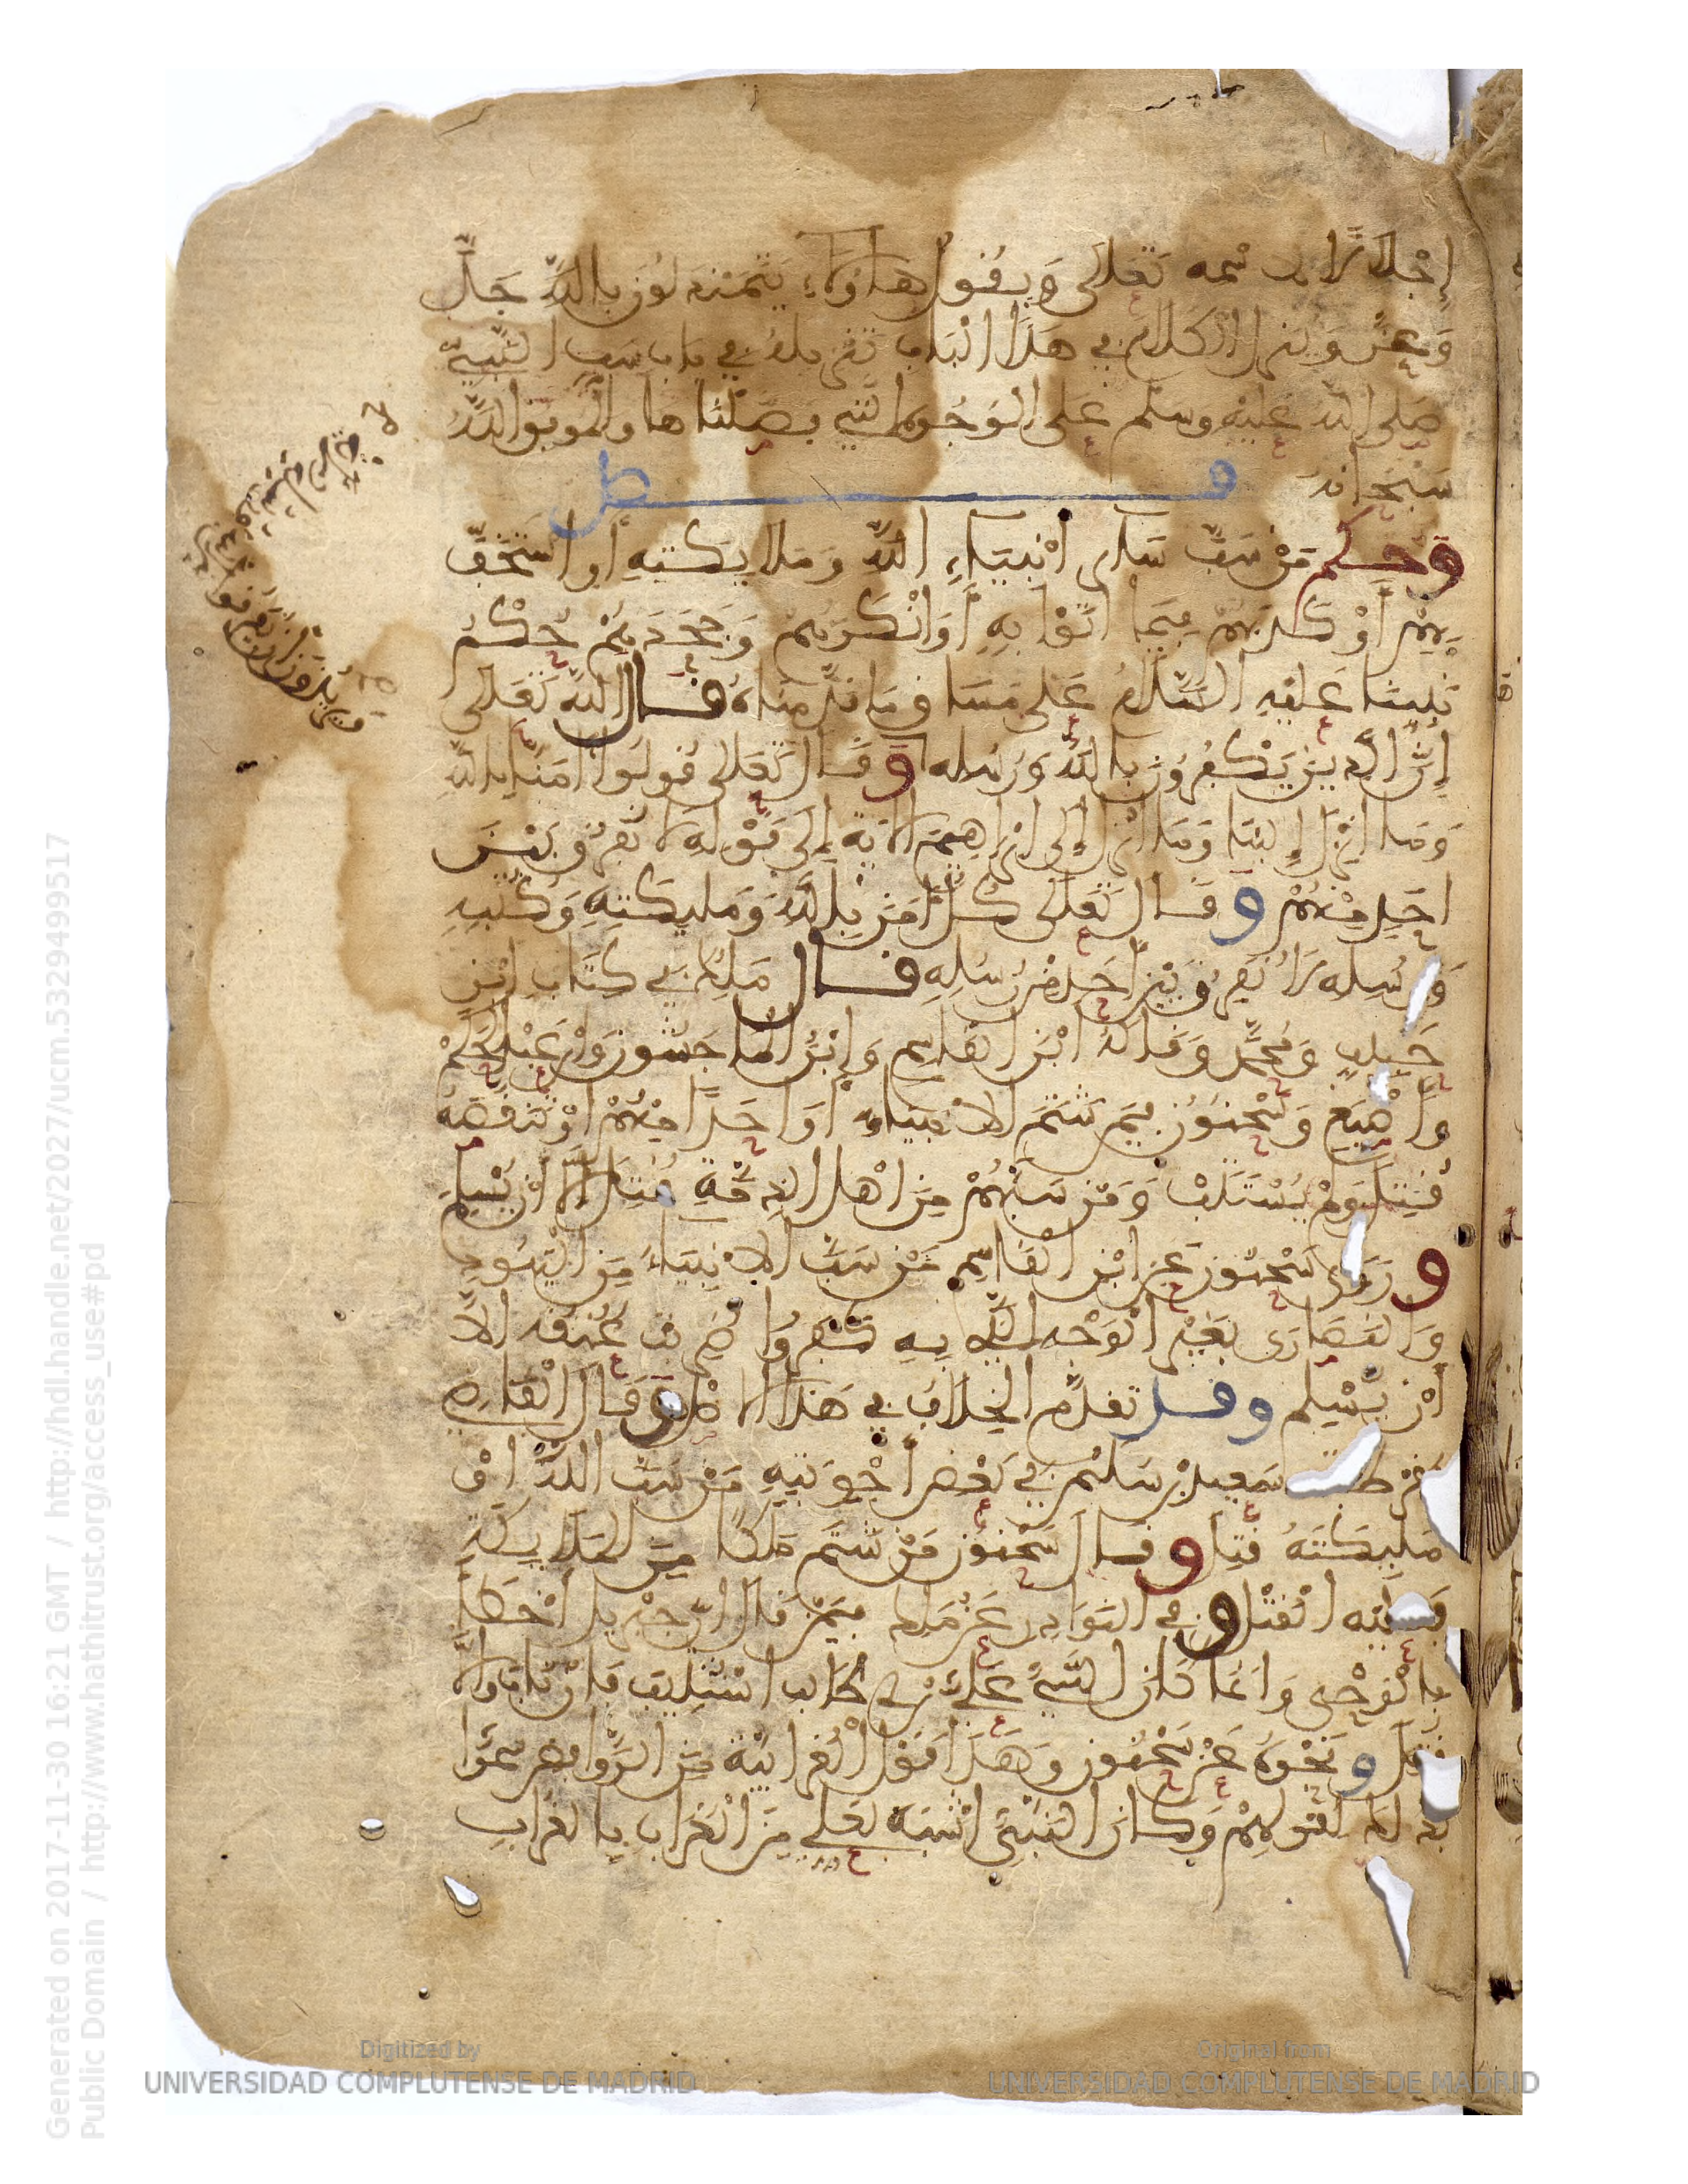 إجلالا لاسمه تعالى ويقول هاولاء يتمندلون بالله جل
وعز وينزل الكلام في هذا الباب تنزيله في باب سب النبي
صلى الله عليه وسلم على الوجوه التي فصلناها والموفق الله
سبحانه
فصل
وحكم من سب ساىر انبياء الله وملايكته أو استخف
بهم أو كذبهم فيما اتوا به أو انكرهم وجحدهم حكم
نبينا عليه السلام على مساق ما قدمناه قال الله تعالى
إن الذين يكفرون بالله ورسله وقال تعالى قولوا امنا بالله
وما انزل إلينا وما انزل إلى ابراهيم الاية إلى قوله لا نفرق بين
احد منهم وقال تعالى كل امن بالله وملايكته وكتبه
ورسله لا نفرق بين أحد من رسله قال ملك في كتاب ابن
حبيب ومحمد وقاله ابن القاسم وابن الماجشون وابن عبد الحكم
وأصبغ وسحنون فيمن شتم الانبياء أو احدا منهم او تنقصه
قتل ولم يستتب ومن سبهم من اهل الذمة قتل إلا ان يسلم
وروى سحنون عن ابن القاسم من سب الانبياء من اليهود
والنصارى بغير الوجه الذي به كفروا ضرب عنقه الا
أن يسلم وقد تقدم الخلاف في هذا الاصل وقال القاضي
بقرطبة سعيد بن سليمن في بعض أجوبته من سب الله او
مليكته قتل وقال سحنون من شتم ملكا من الملايكة
فعليه القتل وفي النوادر عن ملك فيمن قال ان جبريل اخطأ
بالوحي وانما كان النبي علي بن أبي طالب استتيب فان تاب والا
قتل ونحوه عن سحنون وهذا قول الغرابية من الروافض سموا
بذلك لقولهم وكان النبي اشبه بعلي من الغراب بالغراب